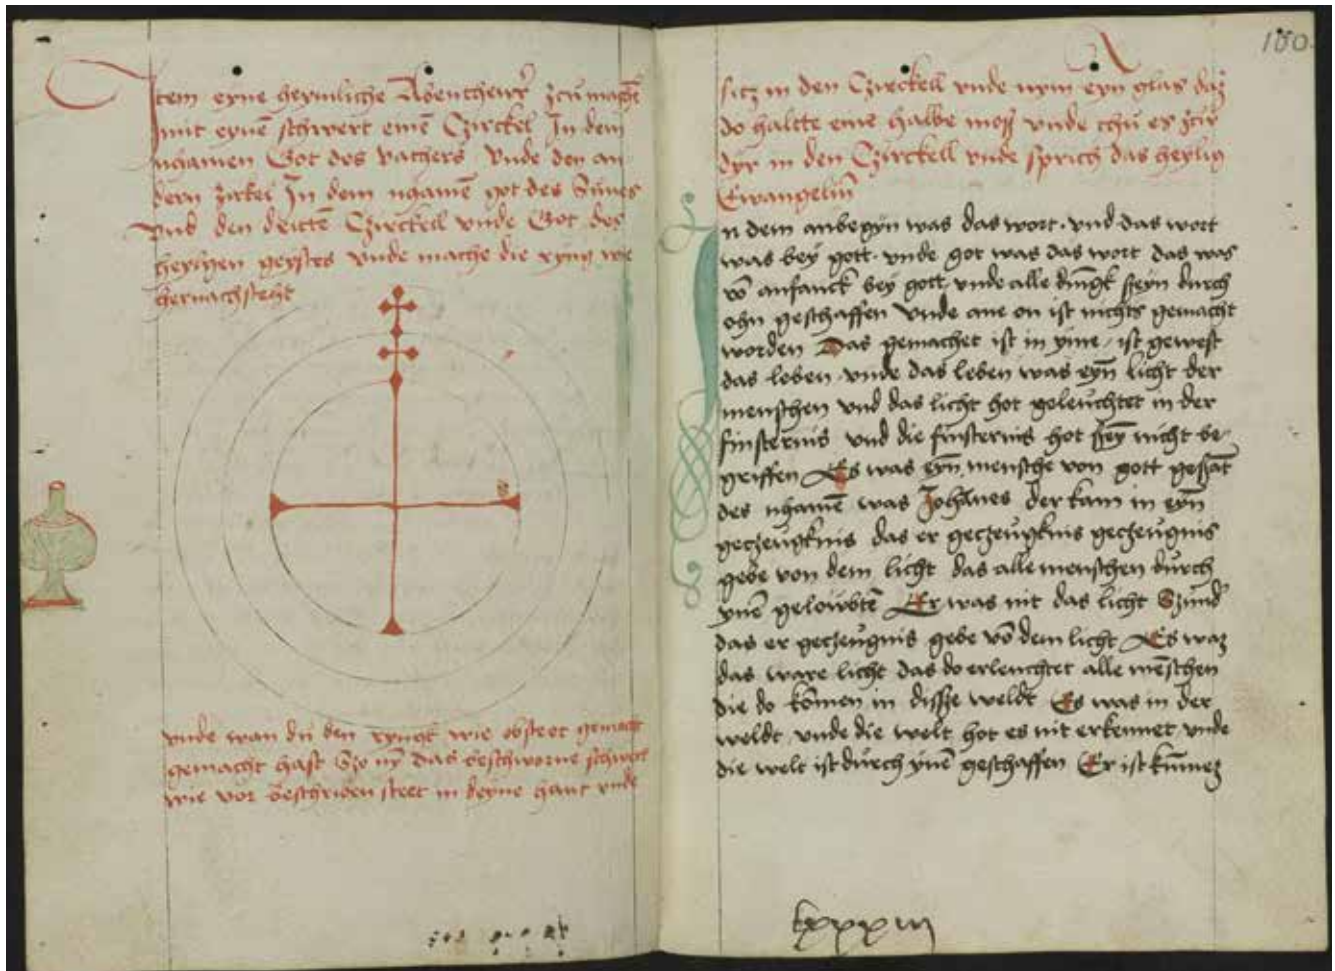 Item eyne heymliche Abentheur̄ zcu machē
mit eynē schwert einē Czirckel In dem
nhamen Got des vathers Vnde den an
dern zirkel In dem nhamē got des Sunes
Vnd den drittē Czirckell vnde Got des
heyligen geystes vnde mache die ryng wie
hernachsteht
vnde wan du den ryngk wie obsteet gemacht
gemacht hast Szo nȳ das beschworne schwert
wie vor beschriben steet in deyne hant vnde
100
sitz in den Czirckell vnde nym eyn glas daz
do haltte eine halbe mosz vnde thu es zcu
dyr in den Czirckell vnde sprich das heylig
Ewangeliū
In dem anbegyn was das wort. vnd das wort
was bey gott. vnde got was das wort das was
vō anfanck bey gott. vnde alle dingk seyn durch
ohn geschaffen Vnde ane on ist nichts gemacht
worden Das gemachet ist in yme / ist gewest
das leben vnde das leben was eyn licht der
menschen vnd das licht hot geleuchtet in der
finsternis vnd die finsternis hot sey nicht be-
griffen Es was eyn mensche von gott gesāt
des nhamē was Johānes der kam in eyn
geczeugknis das er geczeugknis geczeugnis
gebe von dem licht das alle menschen durch
ynē gelowbtē Er was nit das licht Szundʼ
das er geczeugnis gebe vō dem licht Es waz
das ware licht das do erleuchtet alle mēschen
die do komen in dissze weldt Es was in der
weldt vnde die welt hot es nit erkennet vnde
die welt ist durch ynē geschaffen Er ist kumez
lxxxiii